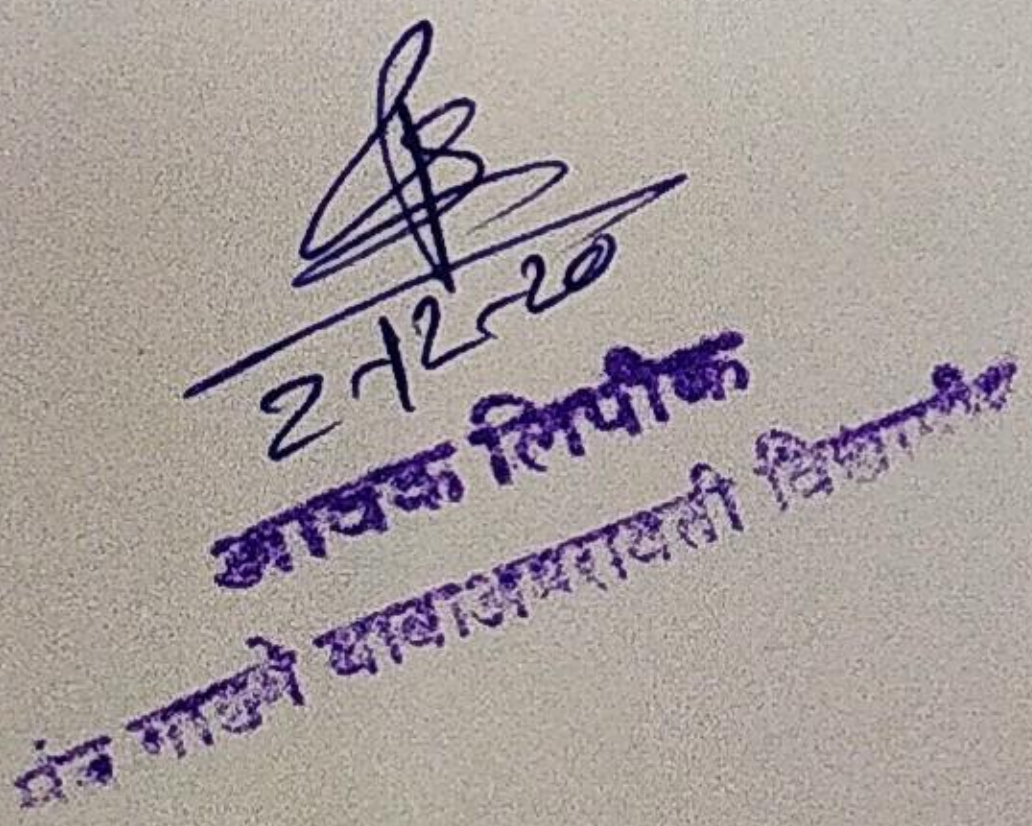 2-12-20
आवक लिपीक
संत गाडगे बाबा अमरावती विद्यापीठ